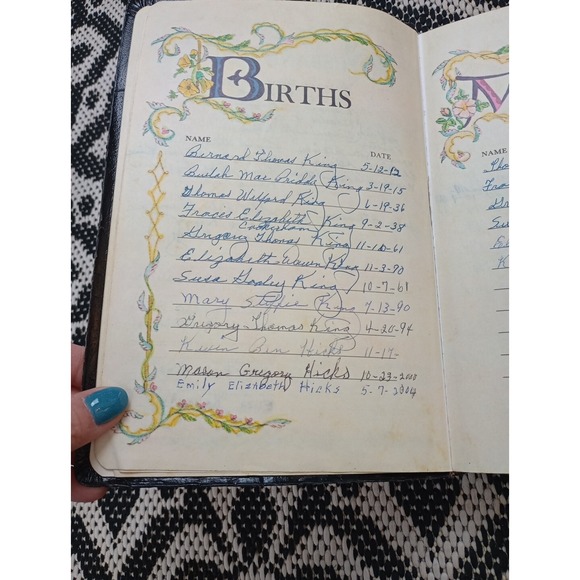 BIRTHS
NAME DATE
Bernard Thomas King 5-12-12
Beulah Mae Priddy King 3-19-15
Thomas Welford King 6-19-36
Frances Elizabeth King 9-2-38
Gregory Thomas King 11-10-61
Elizabeth King 11-3-90
Susa Gooley King 10-7-61
Mary King 7-13-90
Gregory Thomas King 4-20-94
Ben Hicks 11-17-
Mason Gregory Hicks 10-23-2000
Emily Elizabeth Hicks 5-7-2004
M
NAME
Tho
Fra
Su
E
K